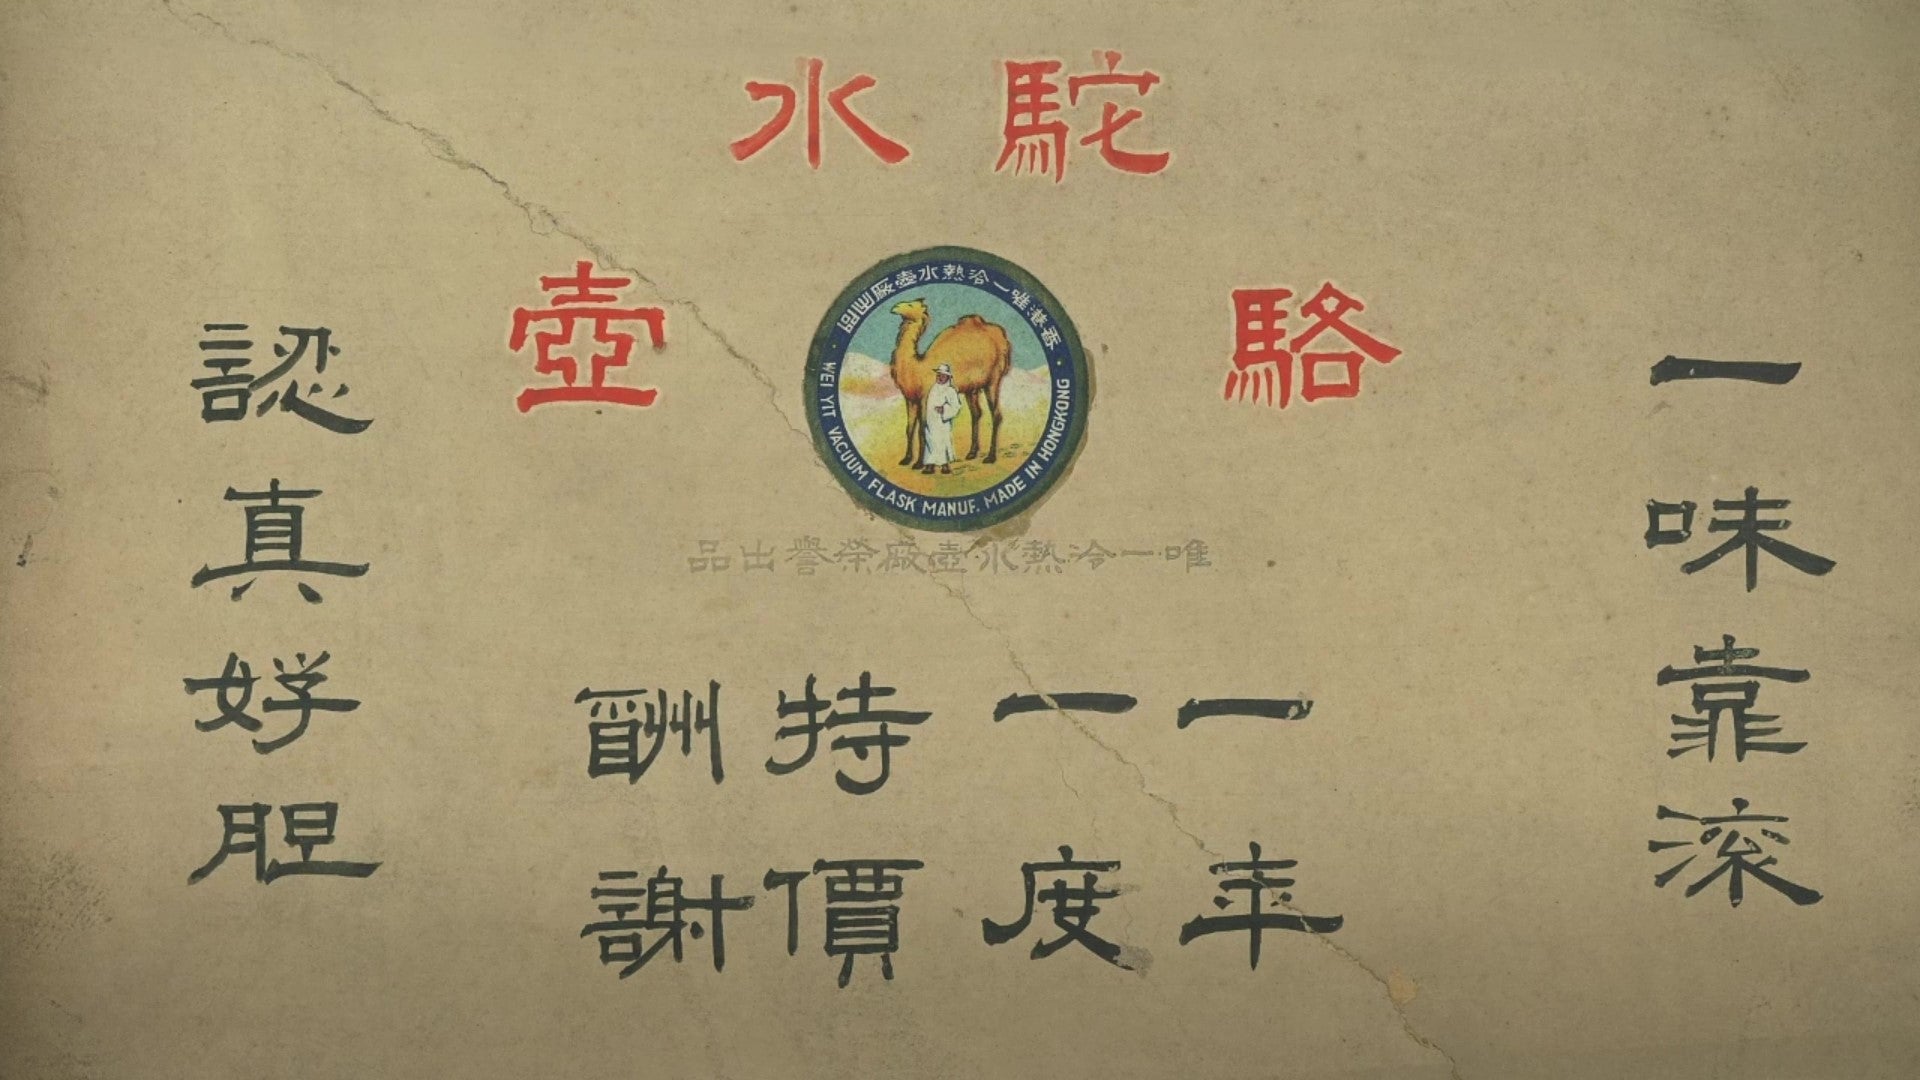 駱駝水壺
香港唯一冷熱水壺廠出品
WEI YIT VACUUM FLASK MANUF. MADE IN HONGKONG
唯一冷熱水壺廠榮譽出品
一味靠滚
認真好胆
一年一度
特價酬謝